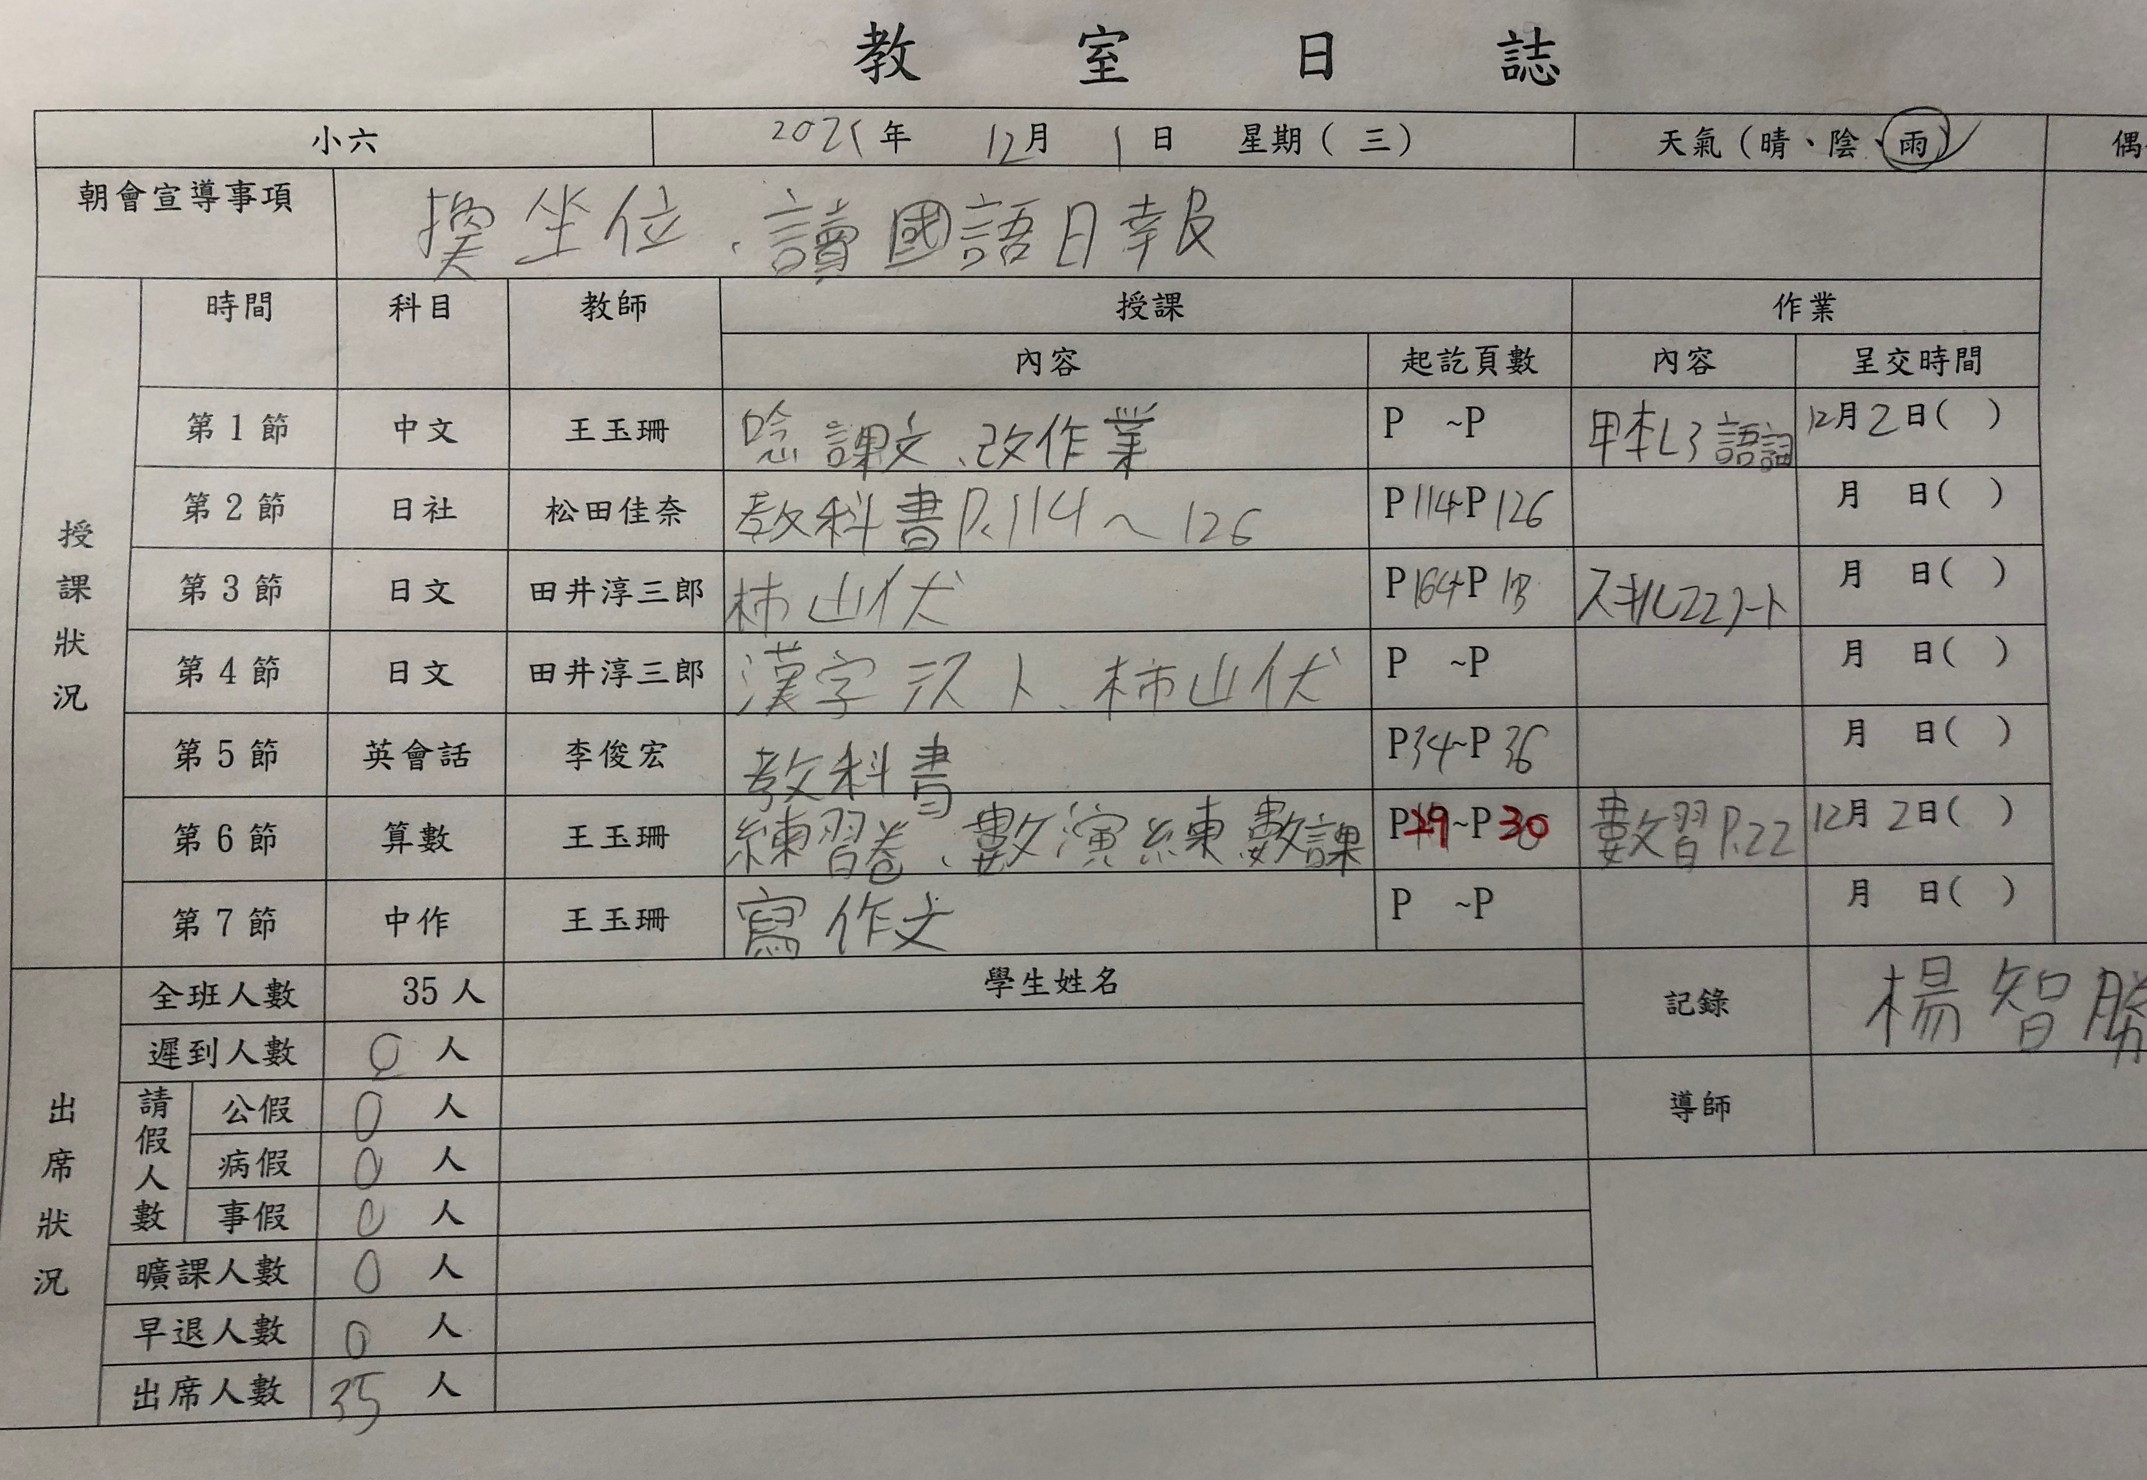 教室日誌
小六 2021年 12月 1日 星期(三) 天氣(晴、陰、雨)
朝會宣導事項 換坐位、讀國語日報
授課狀況 時間 科目 教師 授課 作業
內容 起訖頁數 內容 呈交時間
第1節 中文 王玉珊 唸課文、改作業 P ~P 甲本L3語詞 12月2日( )
第2節 日社 松田佳奈 教科書P.114~126 P114~P126 月 日( )
第3節 日文 田井淳三郎 柿山伏 P164~P スキル22ノート 月 日( )
第4節 日文 田井淳三郎 漢字テスト、柿山伏 P ~P 月 日( )
第5節 英會話 李俊宏 教科書 P34~P36 月 日( )
第6節 算數 王玉珊 練習卷、數演練數課 P29~P30 數習P.22 12月2日( )
第7節 中作 王玉珊 寫作文 P ~P 月 日( )
出席狀況 全班人數 35人 學生姓名 記錄 楊智勝
遲到人數 0人
請假人數 公假 0人 導師
病假 0人
事假 0人
曠課人數 0人
早退人數 0人
出席人數 35人